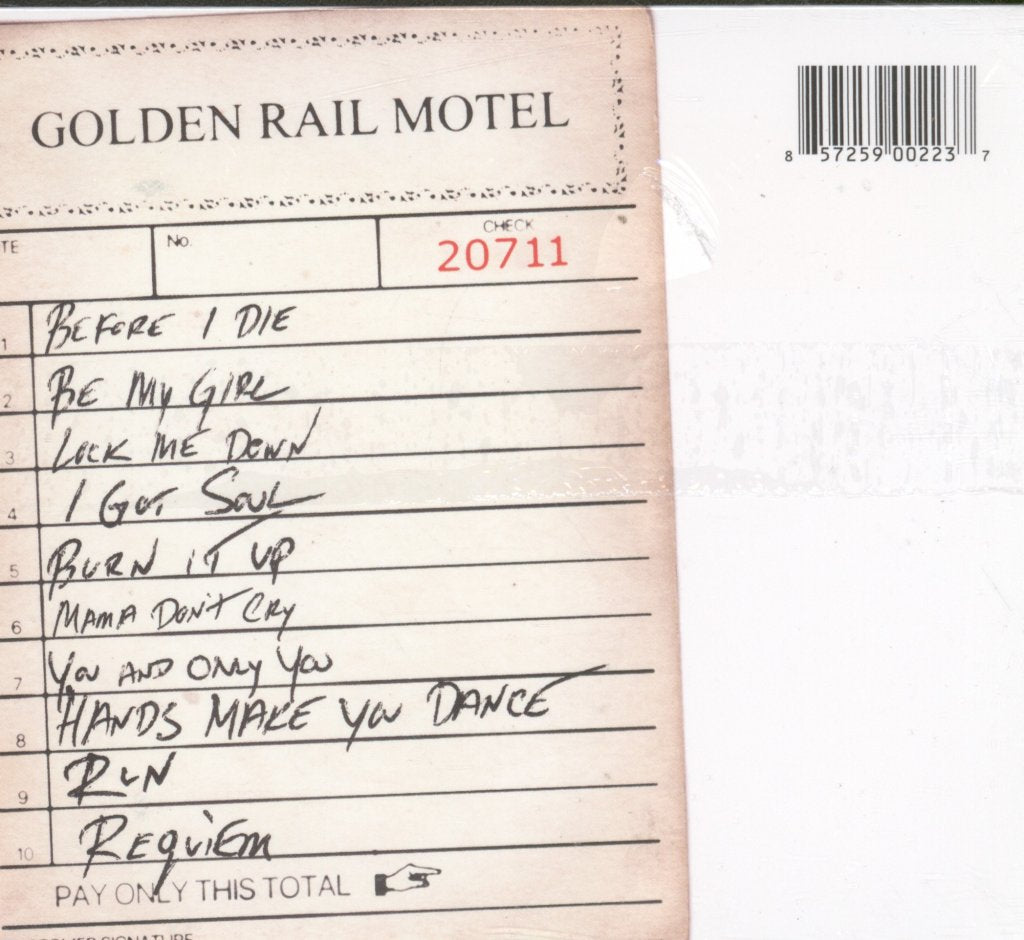 GOLDEN RAIL MOTEL
8 57259 00223 7
TE
No.
CHECK
20711
1 BEFORE I DIE
2 BE MY GIRL
3 LOCK ME DOWN
4 I GOT SOUL
5 BURN IT UP
6 MAMA DON'T CRY
7 YOU AND ONLY YOU
8 HANDS MAKE YOU DANCE
9 RUN
10 REQUIEM
PAY ONLY THIS TOTAL
SIGNATURE